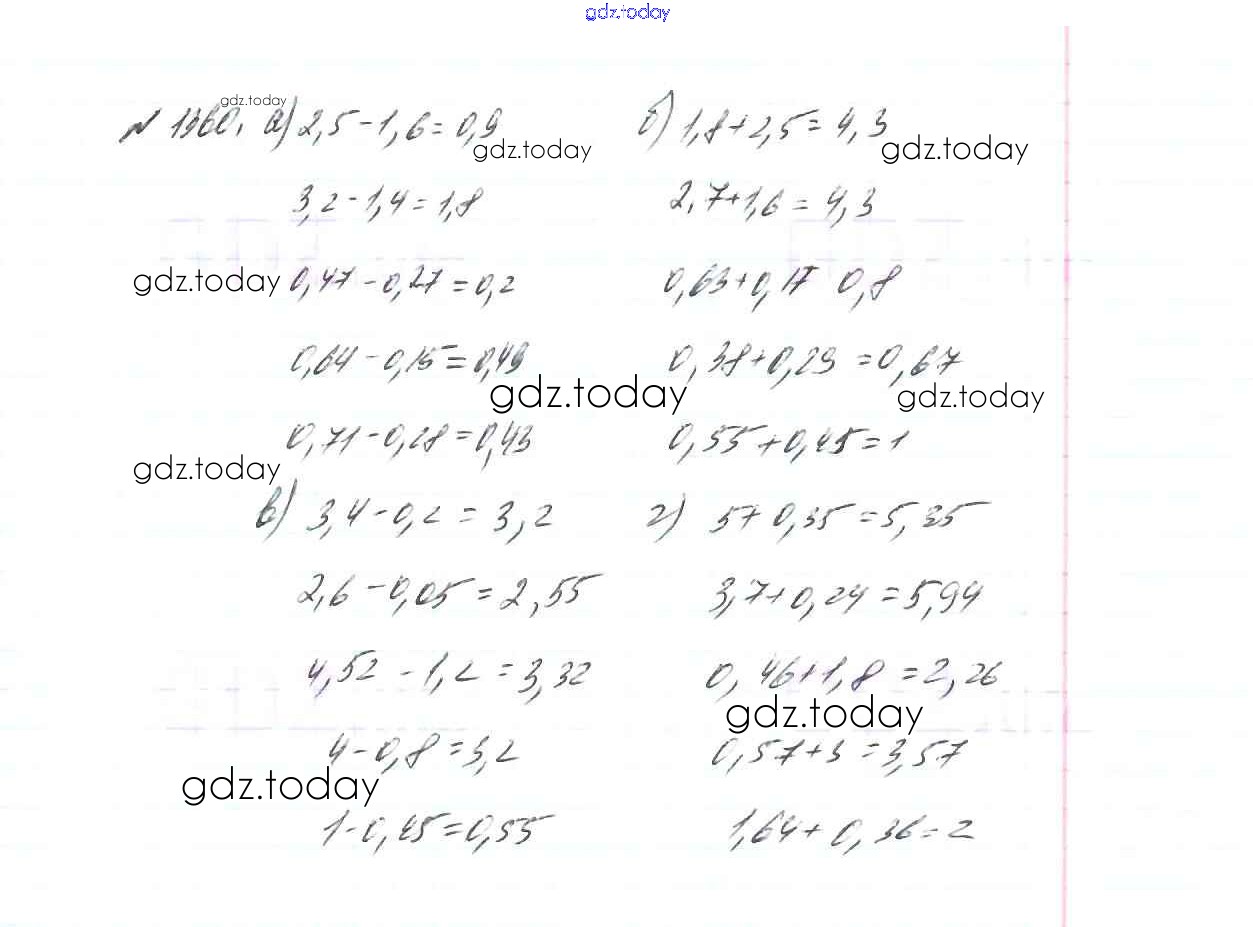 gdz.today
gdz.today
№ 1360. а) 2,5-1,6=0,9 б) 1,8+2,5=4,3
gdz.today gdz.today
3,2-1,4=1,8 2,7+1,6=4,3
gdz.today 0,47-0,27=0,2 0,63+0,17 0,8
0,64-0,15=0,49 0,38+0,29=0,67
gdz.today gdz.today
0,71-0,28=0,43 0,55+0,45=1
gdz.today
в) 3,4-0,2=3,2 г) 5+0,35=5,35
2,6-0,05=2,55 3,7+0,24=5,94
4,52-1,2=3,32 0,46+1,8=2,26
gdz.today
4-0,8=3,2 0,57+3=3,57
gdz.today
1-0,45=0,55 1,64+0,36=2